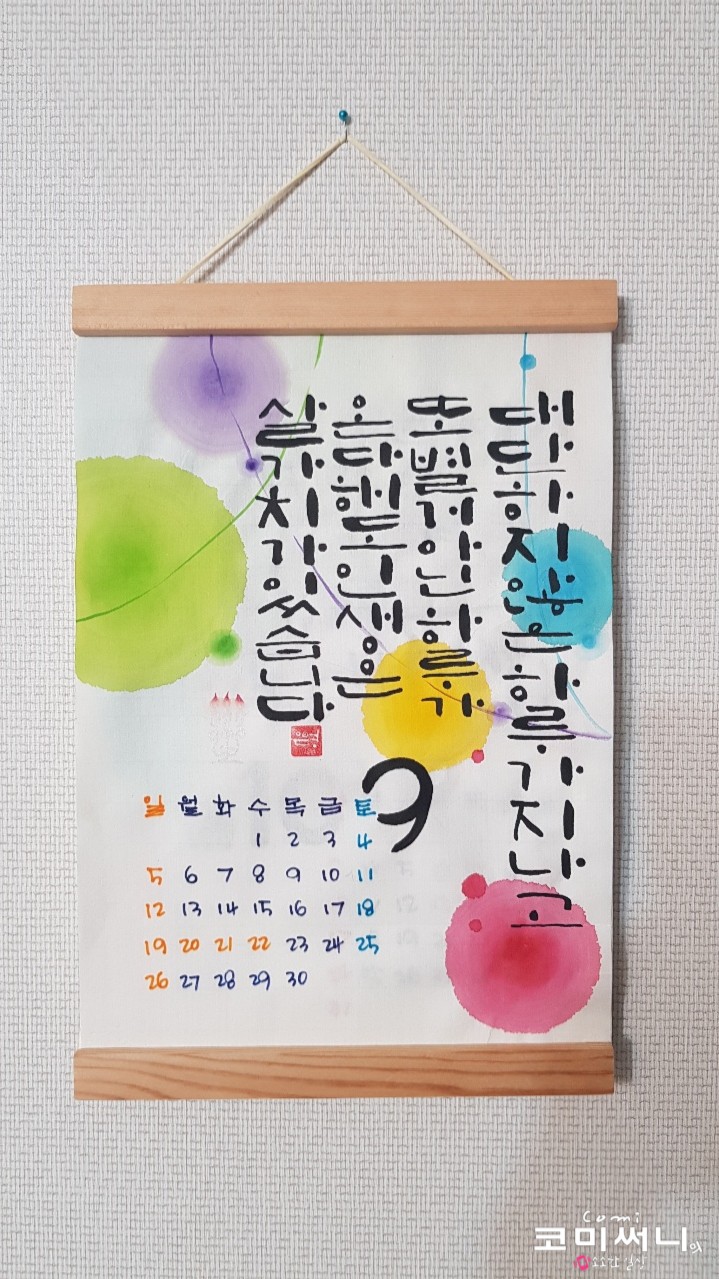 대단하지 않은 하루가 지나고
또 별거 아닌 하루가
온다 해도 인생은
살 가치가 있습니다
9
일 월 화 수 목 금 토
1 2 3 4
5 6 7 8 9 10 11
12 13 14 15 16 17 18
19 20 21 22 23 24 25
26 27 28 29 30
Comi
코미써니의